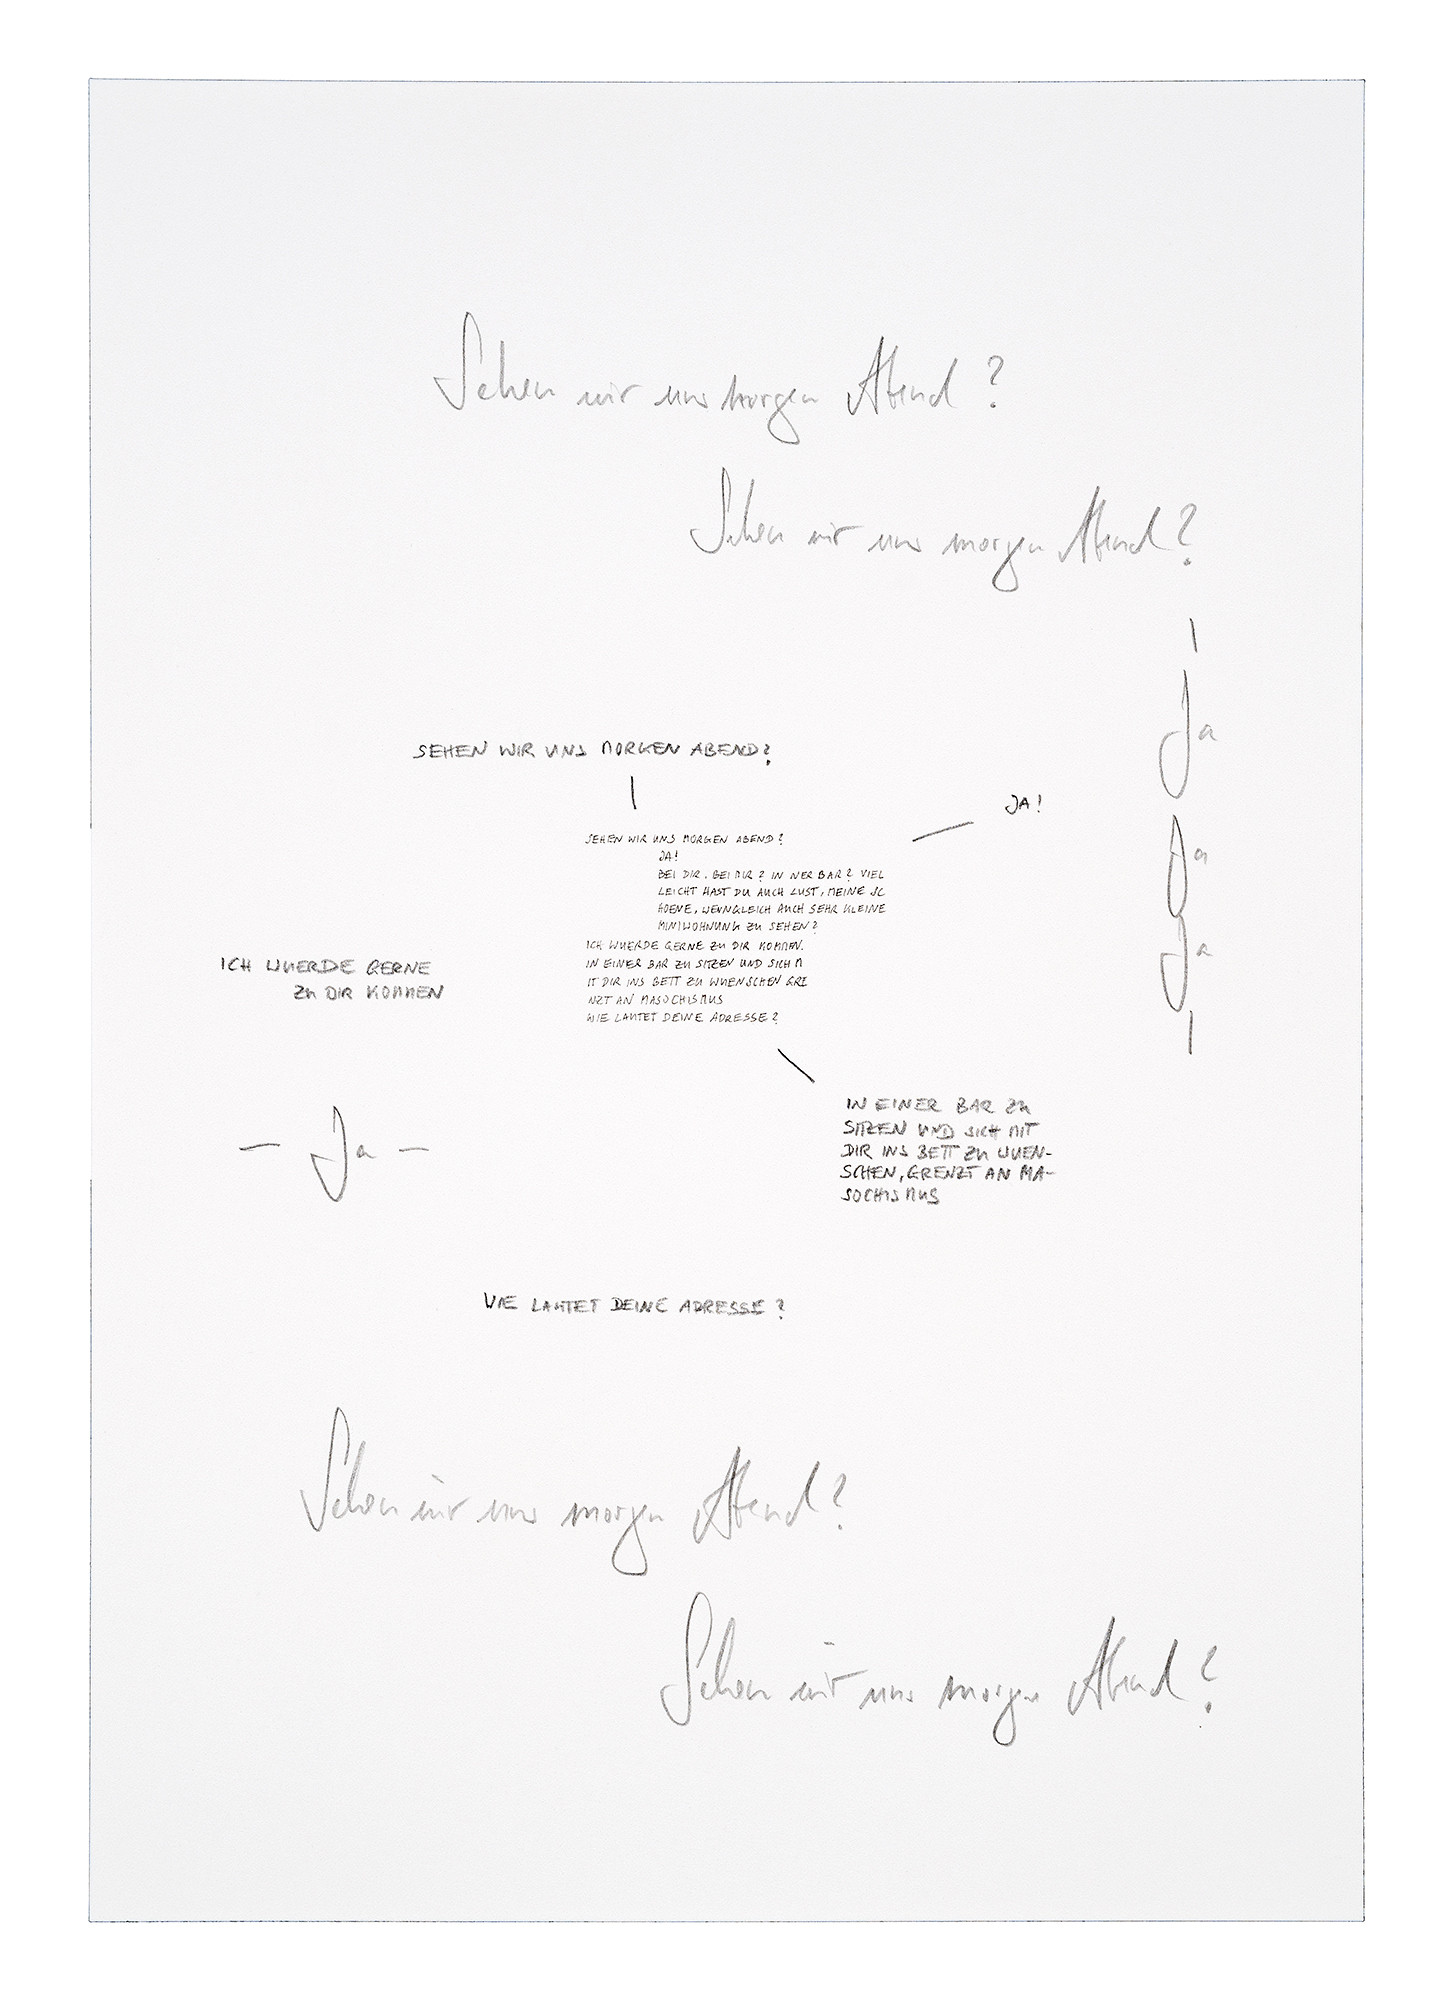 Sehen wir uns morgen Abend?
Sehen wir uns morgen Abend?
Ja
Ja
Ja
SEHEN WIR UNS MORGEN ABEND?
JA!
SEHEN WIR UNS MORGEN ABEND?
JA!
BEI DIR. BEI DIR? IN NER BAR? VIEL
LEICHT HAST DU AUCH LUST, MEINE SC
HOENE, WENNGLEICH AUCH SEHR KLEINE
MINIWOHNUNG ZU SEHEN?
ICH WUERDE GERNE ZU DIR KOMMEN.
IN EINER BAR ZU SITZEN UND SICH M
IT DIR INS BETT ZU WUENSCHEN GRE
NZT AN MASOCHISMUS
WIE LAUTET DEINE ADRESSE?
ICH WUERDE GERNE
ZU DIR KOMMEN
— Ja —
IN EINER BAR ZU
SITZEN UND SICH MIT
DIR INS BETT ZU WUEN-
SCHEN, GRENZT AN MA-
SOCHISMUS
WIE LAUTET DEINE ADRESSE?
Sehen wir uns morgen Abend?
Sehen wir uns morgen Abend?